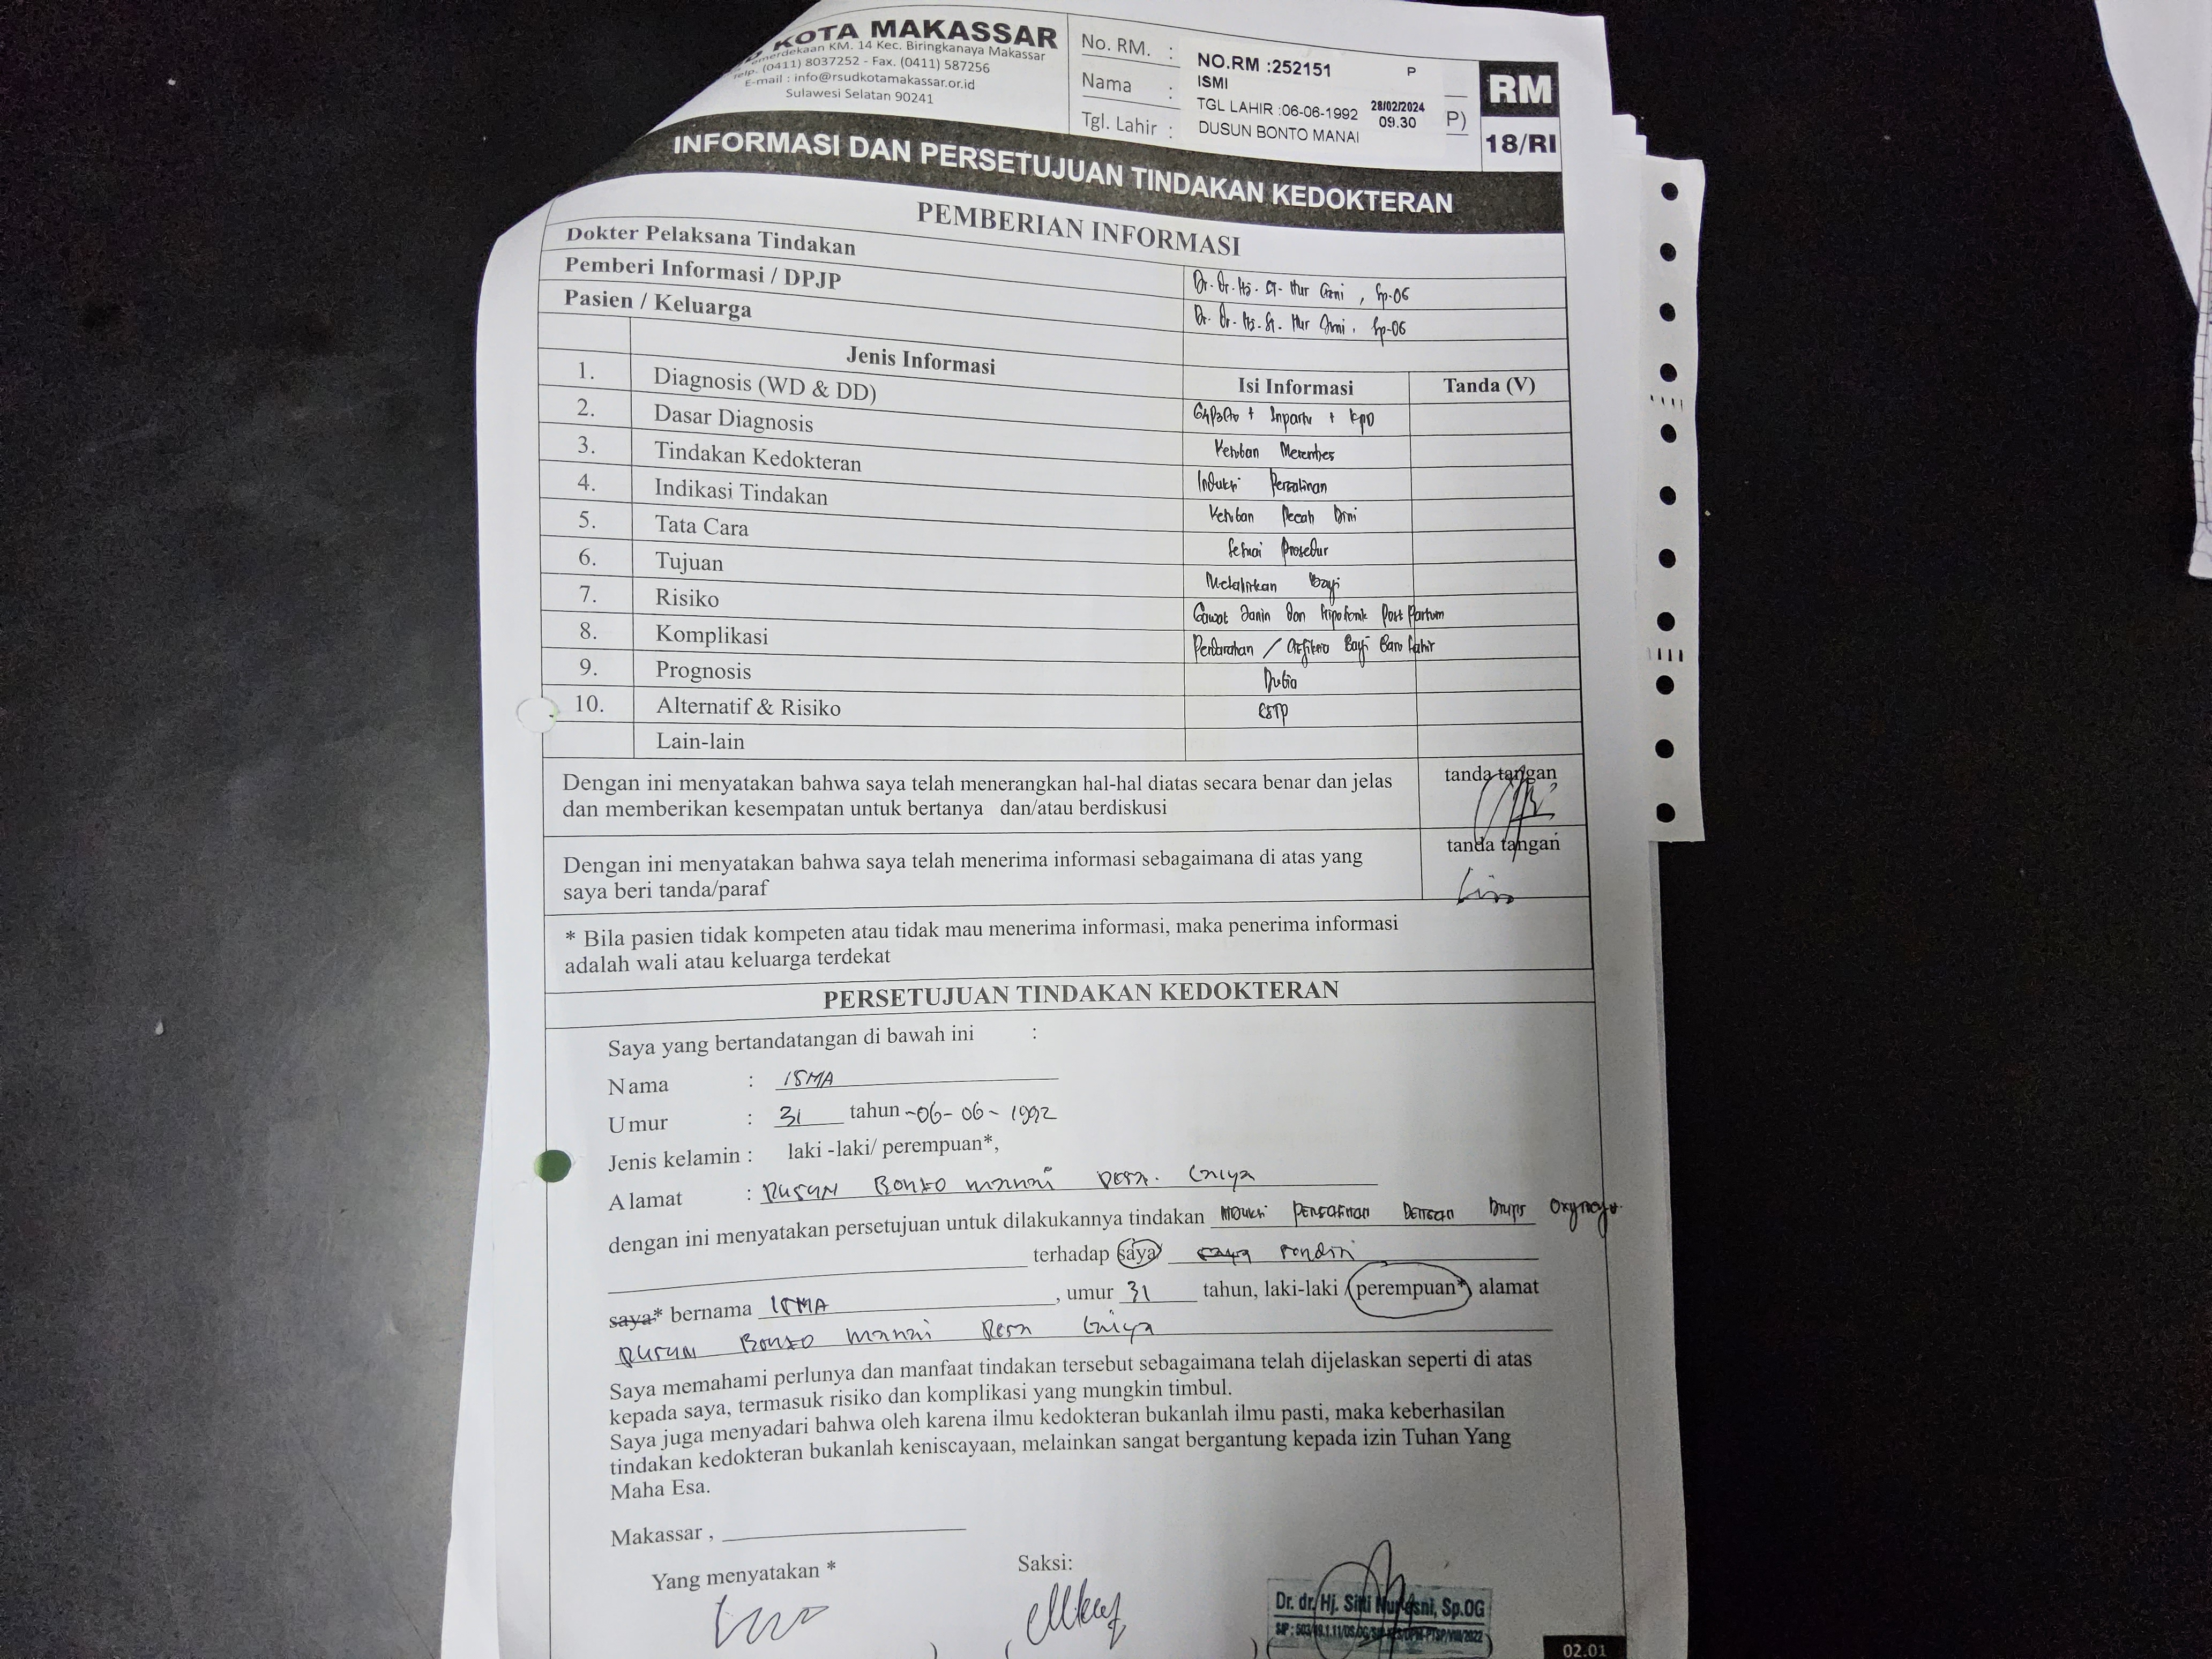 KOTA MAKASSAR
merdekaan KM. 14 Kec. Biringkanaya Makassar
Telp. (0411) 8037252 - Fax. (0411) 587256
E-mail : info@rsudkotamakassar.or.id
Sulawesi Selatan 90241
No. RM. : NO.RM :252151 P
Nama : ISMI
TGL LAHIR :06-06-1992 28/02/2024 09.30 P)
Tgl. Lahir : DUSUN BONTO MANAI
RM
18/RI
INFORMASI DAN PERSETUJUAN TINDAKAN KEDOKTERAN
PEMBERIAN INFORMASI
Dokter Pelaksana Tindakan Dr. Dr. Hj. St. Nur Asni, Sp.OG
Pemberi Informasi / DPJP Dr. Dr. Hj. St. Nur Asni, Sp.OG
Pasien / Keluarga
Jenis Informasi Isi Informasi Tanda (V)
1. Diagnosis (WD & DD) + Inpartu + KPD
2. Dasar Diagnosis Ketuban Merembes
3. Tindakan Kedokteran Induksi Persalinan
4. Indikasi Tindakan Ketuban Pecah Dini
5. Tata Cara Sesuai Prosedur
6. Tujuan Melahirkan Bayi
7. Risiko Gawat Janin dan Post Partum
8. Komplikasi Perdarahan / Bayi Baru Lahir
9. Prognosis Dubia
10. Alternatif & Risiko
Lain-lain
Dengan ini menyatakan bahwa saya telah menerangkan hal-hal diatas secara benar dan jelas
dan memberikan kesempatan untuk bertanya dan/atau berdiskusi
tanda tangan
Dengan ini menyatakan bahwa saya telah menerima informasi sebagaimana di atas yang
saya beri tanda/paraf
tanda tangan
* Bila pasien tidak kompeten atau tidak mau menerima informasi, maka penerima informasi
adalah wali atau keluarga terdekat
PERSETUJUAN TINDAKAN KEDOKTERAN
Saya yang bertandatangan di bawah ini :
Nama : ISMA
Umur : 31 tahun -06-06-1992
Jenis kelamin : laki -laki/ perempuan*,
Alamat : Dusun Bonto manai Desa.
dengan ini menyatakan persetujuan untuk dilakukannya tindakan Induksi Persalinan Dengan Drips
terhadap saya saya sendiri
saya* bernama ISMA , umur 31 tahun, laki-laki / perempuan* alamat
Dusun Bonto manai Desa
Saya memahami perlunya dan manfaat tindakan tersebut sebagaimana telah dijelaskan seperti di atas
kepada saya, termasuk risiko dan komplikasi yang mungkin timbul.
Saya juga menyadari bahwa oleh karena ilmu kedokteran bukanlah ilmu pasti, maka keberhasilan
tindakan kedokteran bukanlah keniscayaan, melainkan sangat bergantung kepada izin Tuhan Yang
Maha Esa.
Makassar ,
Yang menyatakan * Saksi:
Dr. dr. Hj. Sitti Nur Asni, Sp.OG
02.01